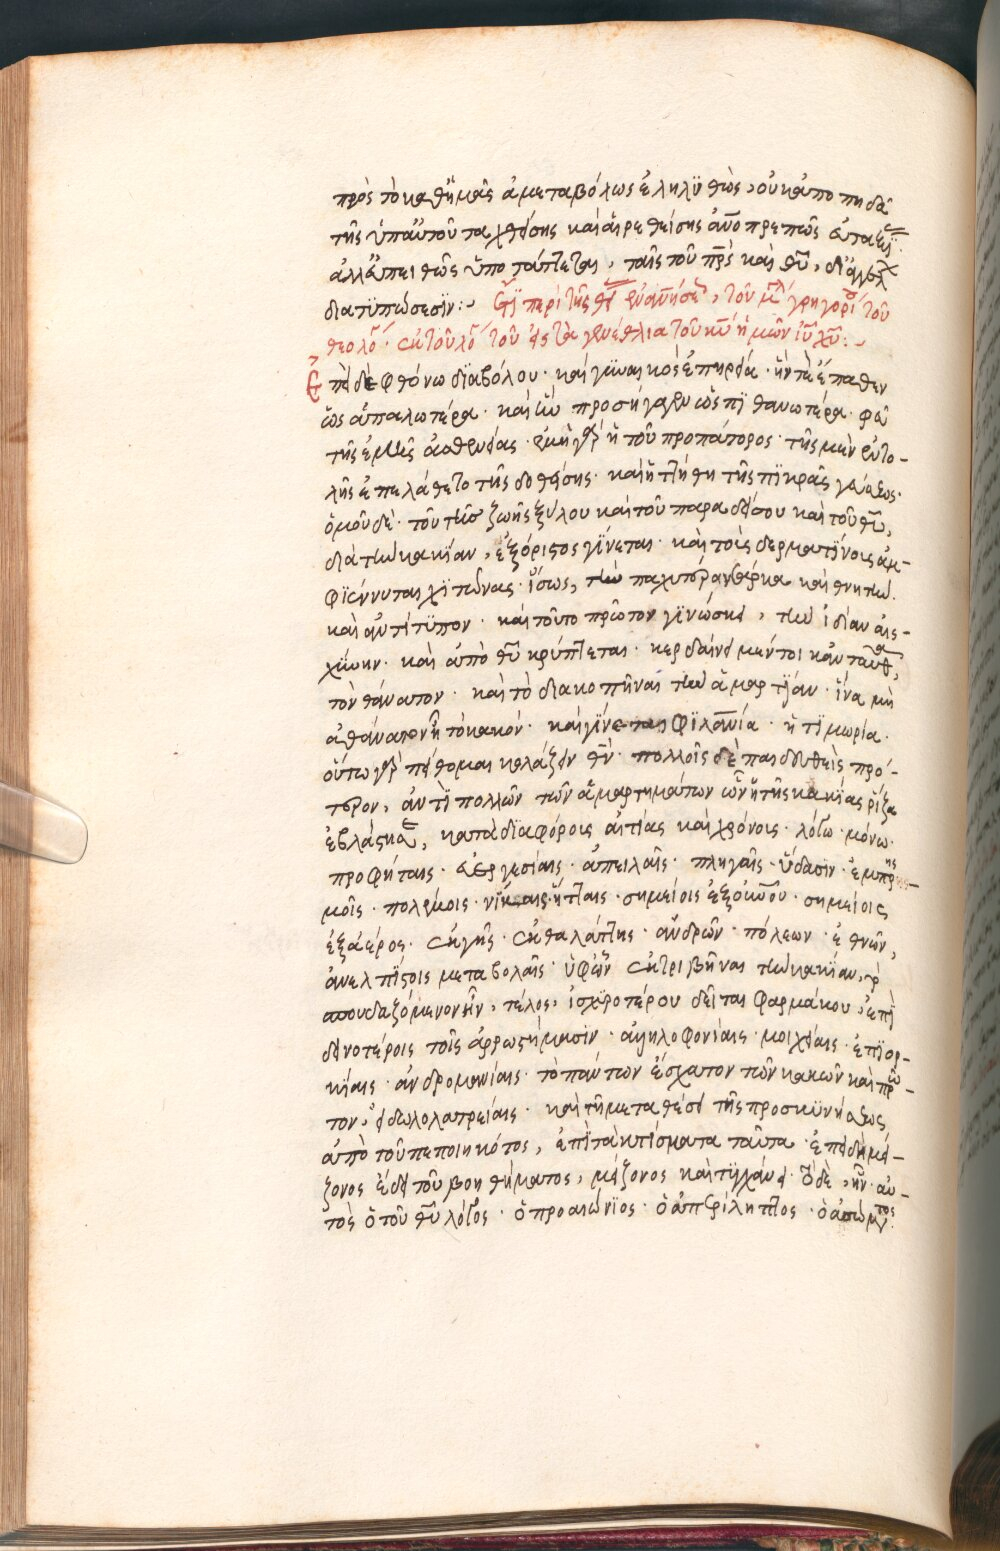 πρὸς τὸ καθ' ἡμᾶς ἀμεταβόλως ἐληλυθὼς, οὐκ ἀποπηδᾶ
τῆς ὑπ' αὐτοῦ ταχθείσης καὶ αἱρεθείσης ἀνοπρεποῦς εὐταξί
ἀλλ' εὐπειθῶς ὑποτάττεται, ταῖς τοῦ πρς καὶ θυ, δι' ἀγγέλ
διατυπώσεσιν :- Ἔτι περὶ τῆς θεί ἐνανήσε, τοῦ μγλ γρηγορί τοῦ
θεολό. ἐκ τοῦ λό τοῦ εἰς τὰ γενέθλια τοῦ κυ ἡμῶν ιυ χυ :-
Ἐπεὶ δὲ φθόνω διαβόλου. καὶ γυναικὸς ἐπηρεία. ἥν τε ἔπαθεν
ὡς ἁπαλωτέρα. καὶ ἣν προσήγαγεν ὡς πιθανωτέρα. φεῦ
τῆς ἐμῆς ἀσθενείας. ἐμὴ γὰρ ἡ τοῦ προπάτορος. τῆς μὲν ἐντο-
λῆς ἐπελάθετο τῆς δοθείσης. καὶ ἡττήθη τῆς πικρᾶς γεύσεως.
ὁμοῦ δὲ. τοῦ τῆς ζωῆς ξύλου καὶ τοῦ παραδείσου καὶ τοῦ θυ,
διὰ τὴν κακίαν, ἐξόριστος γίνεται. καὶ τοὺς δερματίνους ἀμ-
φιέννυται χιτῶνας. ἴσως, τὴν παχυτέραν σάρκα καὶ θνητὴν.
καὶ ἀντίτυπον. καὶ τοῦτο πρῶτον γινώσκει, τὴν ἰδίαν αἰσ-
χύνην. καὶ ἀπὸ θυ κρύπτεται. κερδαίνει μέντοι κἀνταῦθα,
τὸν θάνατον. καὶ τὸ διακοπῆναι τὴν ἁμαρτίαν. ἵνα μὴ
ἀθάνατον ἦ τὸ κακόν. καὶ γίνεται φιλανία. ἡ τιμωρία.
οὕτω γὰρ πείθομαι κολάζειν θν. πολλοῖς δὲ παιδευθεὶς πρό-
τερον, ἀντὶ πολλῶν τῶν ἁμαρτημάτων ὧν ἡ τῆς κακίας ρίζα
ἐβλάστησε, κατὰ διαφόρους αἰτίας καὶ χρόνους. λόγω. νόμω.
προφήταις. εὐεργεσίαις. ἀπειλαῖς. πληγαῖς. ὕδασιν. ἐμπρησ-
μοῖς. πολέμοις. νίκαις. ἥτταις. σημείοις ἐξ οὐνου. σημείοις
ἐξ ἀέρος. ἐκ γῆς. ἐκ θαλάττης. ἀνδρῶν. πόλεων. ἐθνῶν,
ἀνελπίστοις μεταβολαῖς. ὑφ' ὧν ἐκτριβῆναι τὴν κακίαν, τὸ
σπουδαζόμενον ἦν, τέλος, ἰσχυροτέρου δεῖται φαρμάκου, ἐπὶ
δεινοτέροις τοῖς ἀρρωστήμασιν. ἀλληλοφονίαις. μοιχείαις. ἐπιορ-
κίαις. ἀνδρομανίαις. τὸ πάντων ἔσχατον τῶν κακῶν καὶ πρῶ-
τον, εἰδωλολατρείαις. καὶ τῆ μεταθέσει τῆς προσκυνήσεως
ἀπὸ τοῦ πεποιηκότος, ἐπὶ τὰ κτίσματα ταῦτα. ἐπειδὴ μεί-
ζονος ἐδεῖ τοῦ βοηθήματος, μείζονος καὶ τυγχάνει. τὸ δὲ, ἦν. αὐ-
τὸς ὁ τοῦ θυ λόγος. ὁ προαιώνιος. ὁ ἀπερίληπτος. ὁ ἀσώματος.